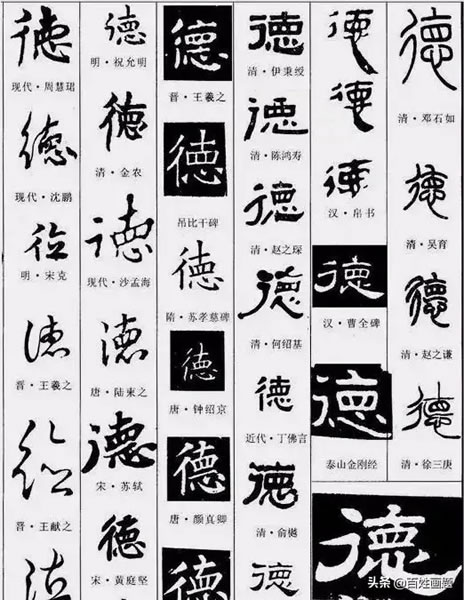 德
现代·周慧珺
德
现代·沈鹏
德
明·宋克
德
晋·王羲之
德
晋·王献之
德
德
明·祝允明
德
清·金农
德
现代·沙孟海
德
唐·陆柬之
德
宋·苏轼
德
宋·黄庭坚
德
晋·王羲之
德
吊比干碑
德
隋·苏孝慈碑
德
唐·钟绍京
德
唐·颜真卿
德
德
清·伊秉绶
德
清·陈鸿寿
德
清·赵之琛
德
清·何绍基
德
近代·丁佛言
德
清·俞樾
德
德
德
德
汉·帛书
德
汉·曹全碑
德
泰山金刚经
德
德
清·邓石如
德
清·吴育
德
清·赵之谦
德
清·徐三庚
头条 @百姓画题